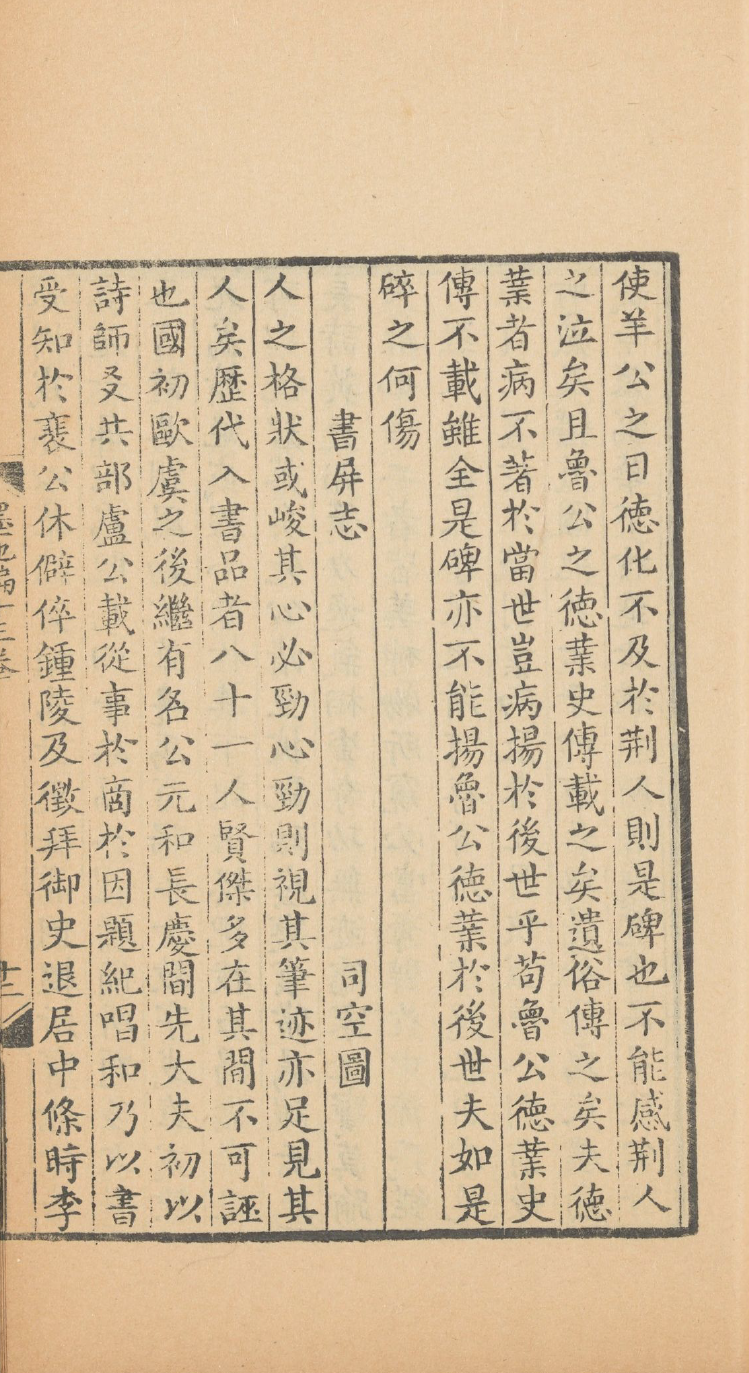 使羊公之日徳化不及於荆人則是碑也不能感荆人
之泣矣且魯公之徳葉史傳載之矣遺俗傳之矣夫徳
葉者病不著於當世豈病揚於後世乎苟魯公徳葉史
傳不載雖全是碑亦不能揚魯公徳葉於後世夫如是
碎之何傷
書屏志 司空圖
人之格狀或峻其心必勁心勁則視其筆迹亦足見其
人矣歷代入書品者八十一人賢傑多在其間不可誣
也國初歐虞之後繼有名公元和長慶間先大夫初以
詩師友共部盧公載從事於商於因題紀唱和乃以書
受知於裵公休僻倅鍾陵及徵拜御史退居中條時李
墨池編十三卷
十二